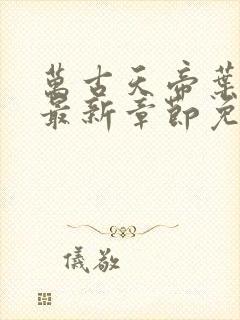 萬古天帝葉
最新章節免
儀敬